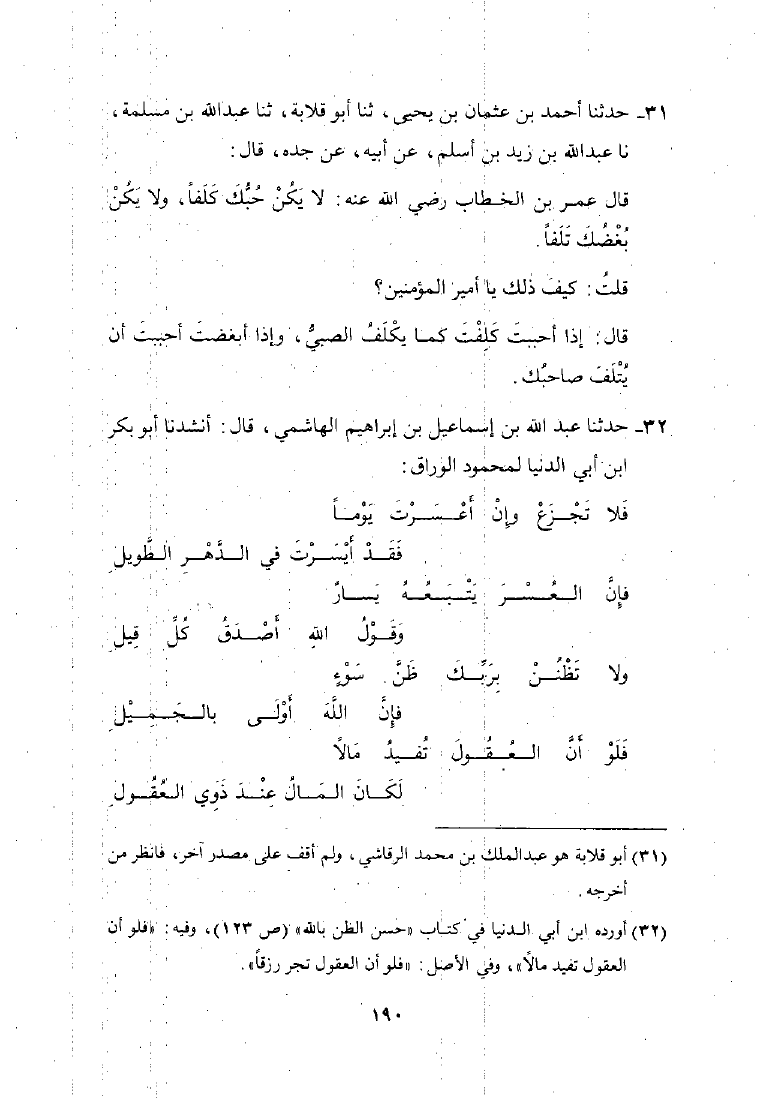 ٣١ـ حدثنا أحمد بن عثمان بن يحيى، ثنا أبو قلابة، ثنا عبدالله بن مسلمة،
نا عبدالله بن زيد بن أسلم، عن أبيه، عن جده، قال:
قال عمر بن الخطاب رضي الله عنه: لا يَكُنْ حُبُّكَ كَلَفاً، ولا يَكُنْ
بُغْضُكَ تَلَفاً.
قلتُ: كيفَ ذلك يا أمير المؤمنين؟
قال: إذا أحببتَ كَلِفْتَ كما يكْلَفُ الصبيُّ، وإذا أبغضتَ أحببتَ أن
يُتْلَفَ صاحبُك.
٣٢ـ حدثنا عبد الله بن إسماعيل بن إبراهيم الهاشمي، قال: أنشدنا أبو بكر
ابن أبي الدنيا لمحمود الوراق:
فَلا تَجْزَعْ وإنْ أَعْسَرْتَ يَوْماً
فَقَدْ أَيْسَرْتَ في الدَّهْرِ الطَّويل
فإنَّ العُسْرَ يَتْبَعُهُ يَسارٌ
وَقَوْلُ اللهِ أَصْدَقُ كُلِّ قِيل
ولا تَظْنُنْ بِرَبِّكَ ظَنَّ سَوْءٍ
فإنَّ اللَّهَ أَوْلَى بالجَمِيْل
فَلَوْ أَنَّ العُقُولَ تُفيدُ مَالاً
لَكَانَ المَالُ عِنْدَ ذَوِي العُقُول
(٣١) أبو قلابة هو عبدالملك بن محمد الرقاشي، ولم أقف على مصدر آخر، فانظر من
أخرجه.
(٣٢) أورده ابن أبي الدنيا في كتاب «حسن الظن بالله» (ص ١٢٣)، وفيه: «فلو أن
العقول تفيد مالاً»، وفي الأصل: «فلو أن العقول تجر رزقاً».
١٩٠